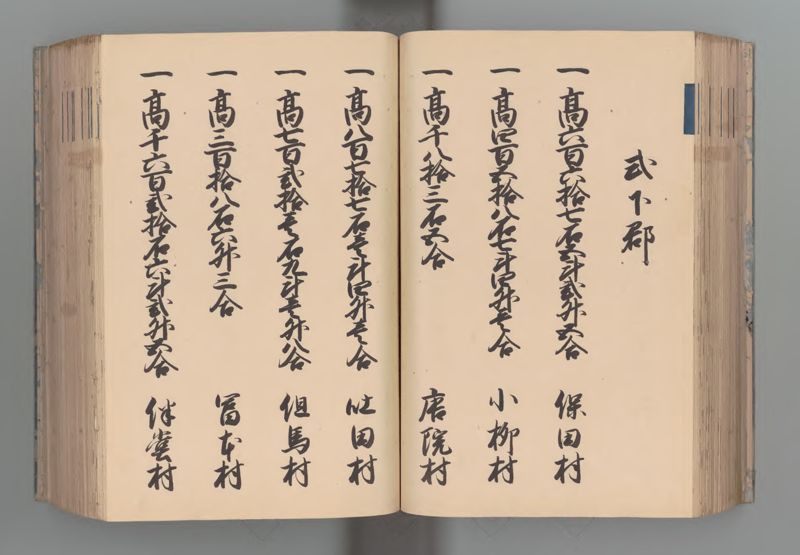 式下郡
一高六百六拾七石五斗弐升五合 保田村
一高四百五拾八石七斗四升壱合 小柳村
一高千八拾三石五合 唐院村
一高八百七拾七石壱斗四升壱合 吐田村
一高七百弐拾壱石九斗壱升八合 但馬村
一高三百拾八石六升三合 冨本村
一高千六百弐拾石六斗弐升五合 伴堂村